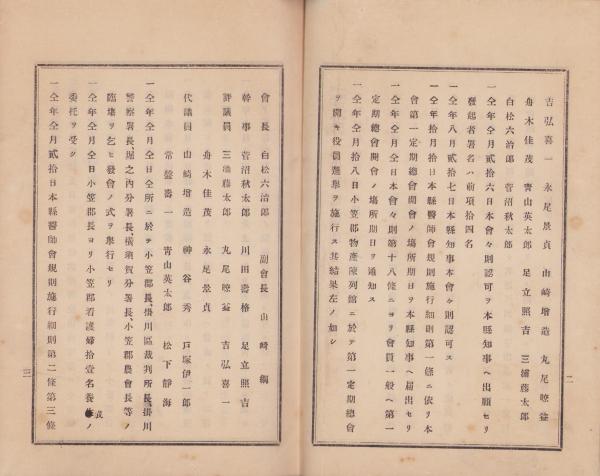 吉弘喜一　永尾景貞　山崎增造　丸尾暸益
舟木佳茂　靑山英太郞　足立照吉　三浦藤太郞
白松六治郞　菅沼秋太郞
一仝年仝月貳拾六日本會々則認可ヲ本縣知事ヘ出願セリ
發起者署名ハ前項拾四名
一仝年八月貳拾七日本縣知事本會々則認可ス
一仝年拾月拾日本縣醫師會規則施行細則第一條ニ依リ本
會第一定期總會開會ノ塲所期日ヲ本縣知事ヘ屆出セリ
一仝年仝月仝日本會々則第十八條ニヨリ會員一般ヘ第一
定期總會開會ノ塲所期日ヲ通知ス
一仝年仝月十八日小笠郡物產陳列館ニ於テ第一定期總會
ヲ開キ役員選擧ヲ施行ス其結果左ノ如シ
二
會長　白松六治郞　副會長　山崎綱
幹事　菅沼秋太郞　川田壽格　足立照吉
評議員　三浦藤太郞　丸尾暸益　吉弘喜一
舟木佳茂　永尾景貞
代議員　山崎增造　神谷秀　戶塚伊一郞
常盤壽一　靑山英太郞　松下靜海
一仝年仝月仝日仝所ニ於テ小笠郡長、掛川區裁判所長、掛川
警察署長、堀之內分署長、橫須賀分署長、小笠郡農會長等ノ
臨塲ヲ乞ヒ發會ノ式ヲ擧行セリ
一仝年仝月仝日小笠郡長ヨリ小笠郡看護婦拾壹名養成ノ
委托ヲ受ク
一仝年仝月貳拾日本縣醫師會規則施行細則第二條第三條
三